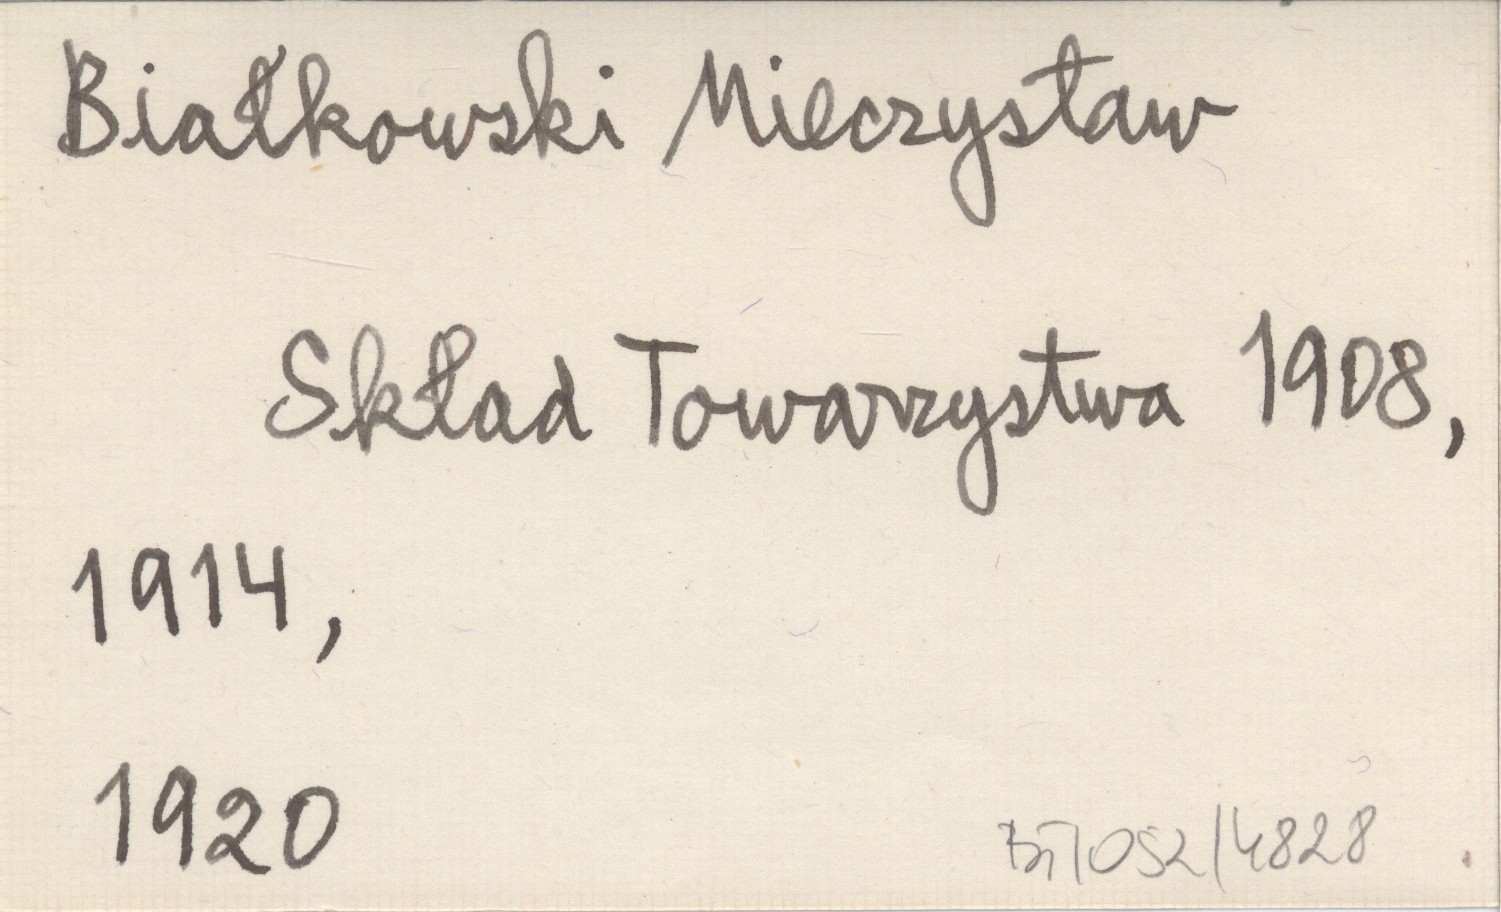 Białkowski Mieczysław
Skład Towarzystwa 1908,
1914,
1920